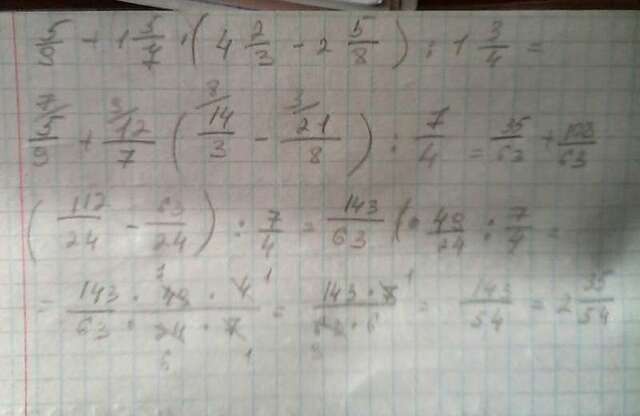 5/9 + 1 5/7 · (4 2/3 - 2 5/8) : 1 3/4 =
7/ 5/9 + 9/ 12/7 (8/ 14/3 - 3/ 21/8) : 7/4 = 35/63 + 108/63
(112/24 - 63/24) : 7/4 = 143/63 (· 49/24 : 7/4 =
= 143 · 49 · 4 / 63 · 24 · 7 = 143 · 7 / 63 · 6 = 143/54 = 2 35/54